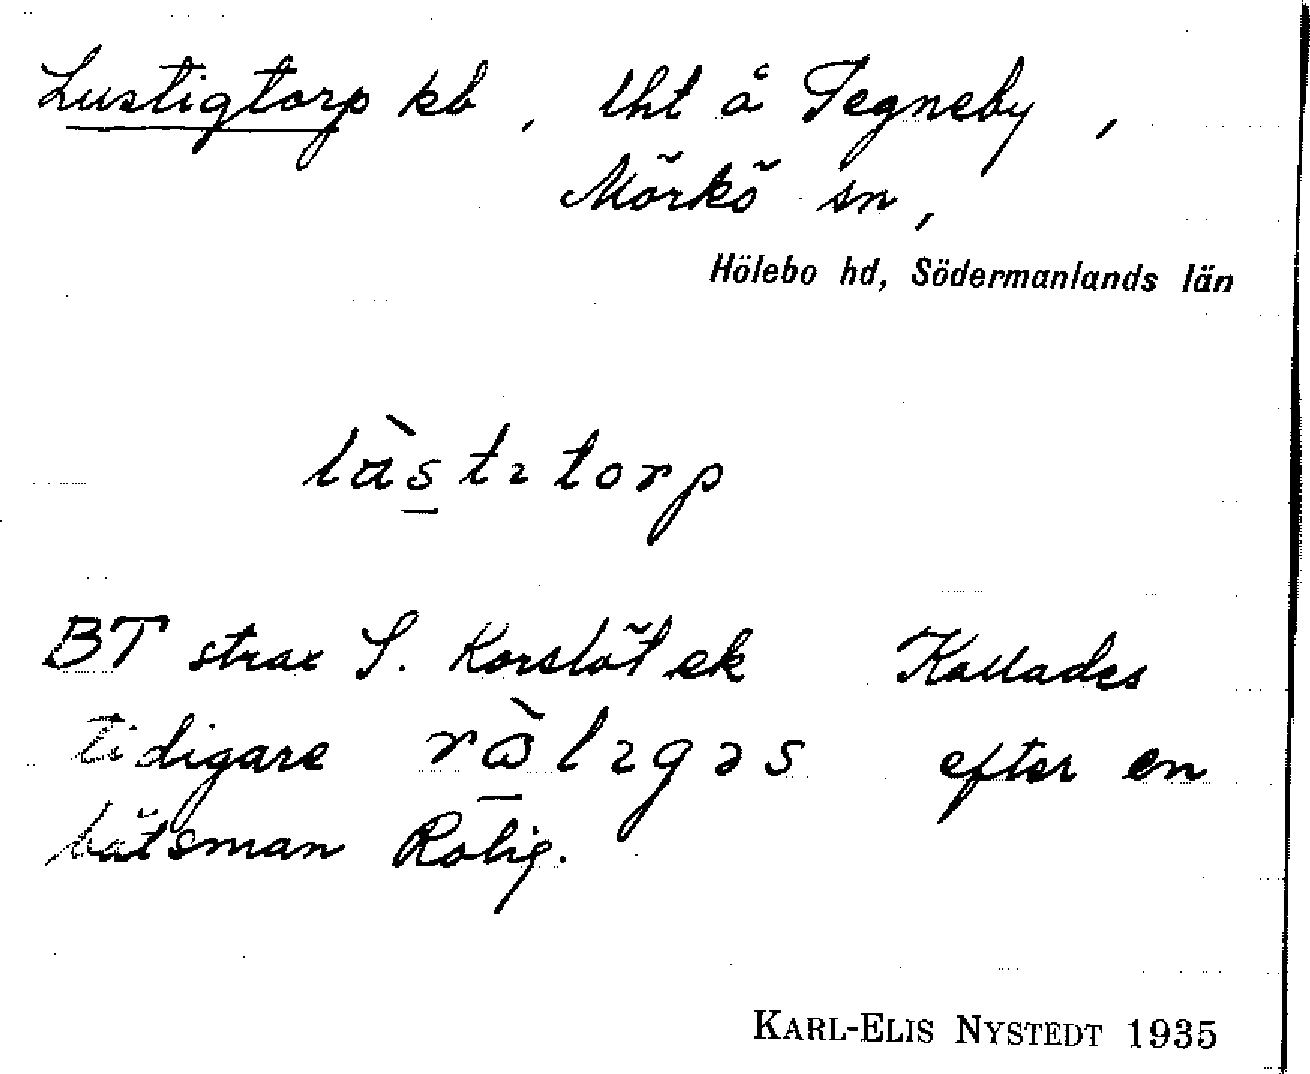 Lustigtorp kb, lht å Tegneby,
Mörkö sn,
Hölebo hd, Södermanlands län
BT strax S. Korslöt ek Kallades
tidigare efter en
båtsman Rolig.
KARL-ELIS NYSTEDT 1935